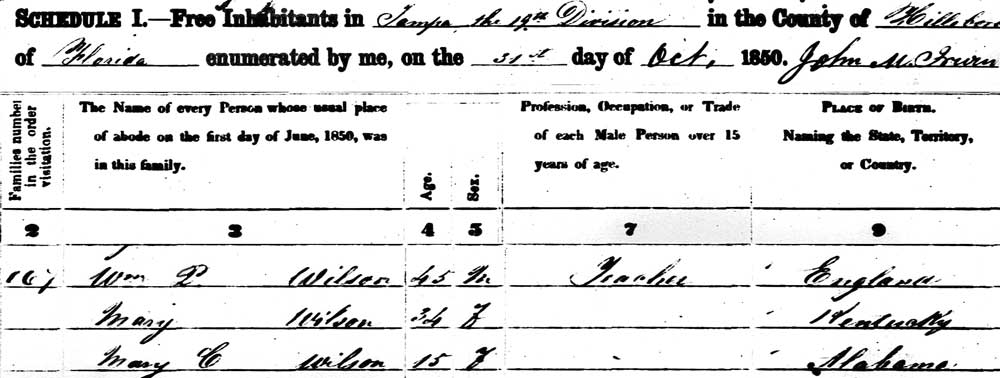 SCHEDULE I.—Free Inhabitants in Tampa, the 19th Division in the County of Hillsboro
of Florida enumerated by me, on the 31st day of Oct, 1850. John M. Irwin
Families number
in the order
visitation.
The Name of every Person whose usual place
of abode on the first day of June, 1850, was
in this family.
Age.
Sex.
Profession, Occupation, or Trade
of each Male Person over 15
years of age.
PLACE OF BIRTH.
Naming the State, Territory,
or Country.
2 3 4 5 7 9
167 Wm P. Wilson 45 M Teacher England
Mary Wilson 34 F Kentucky
Mary C Wilson 15 F Alabama.